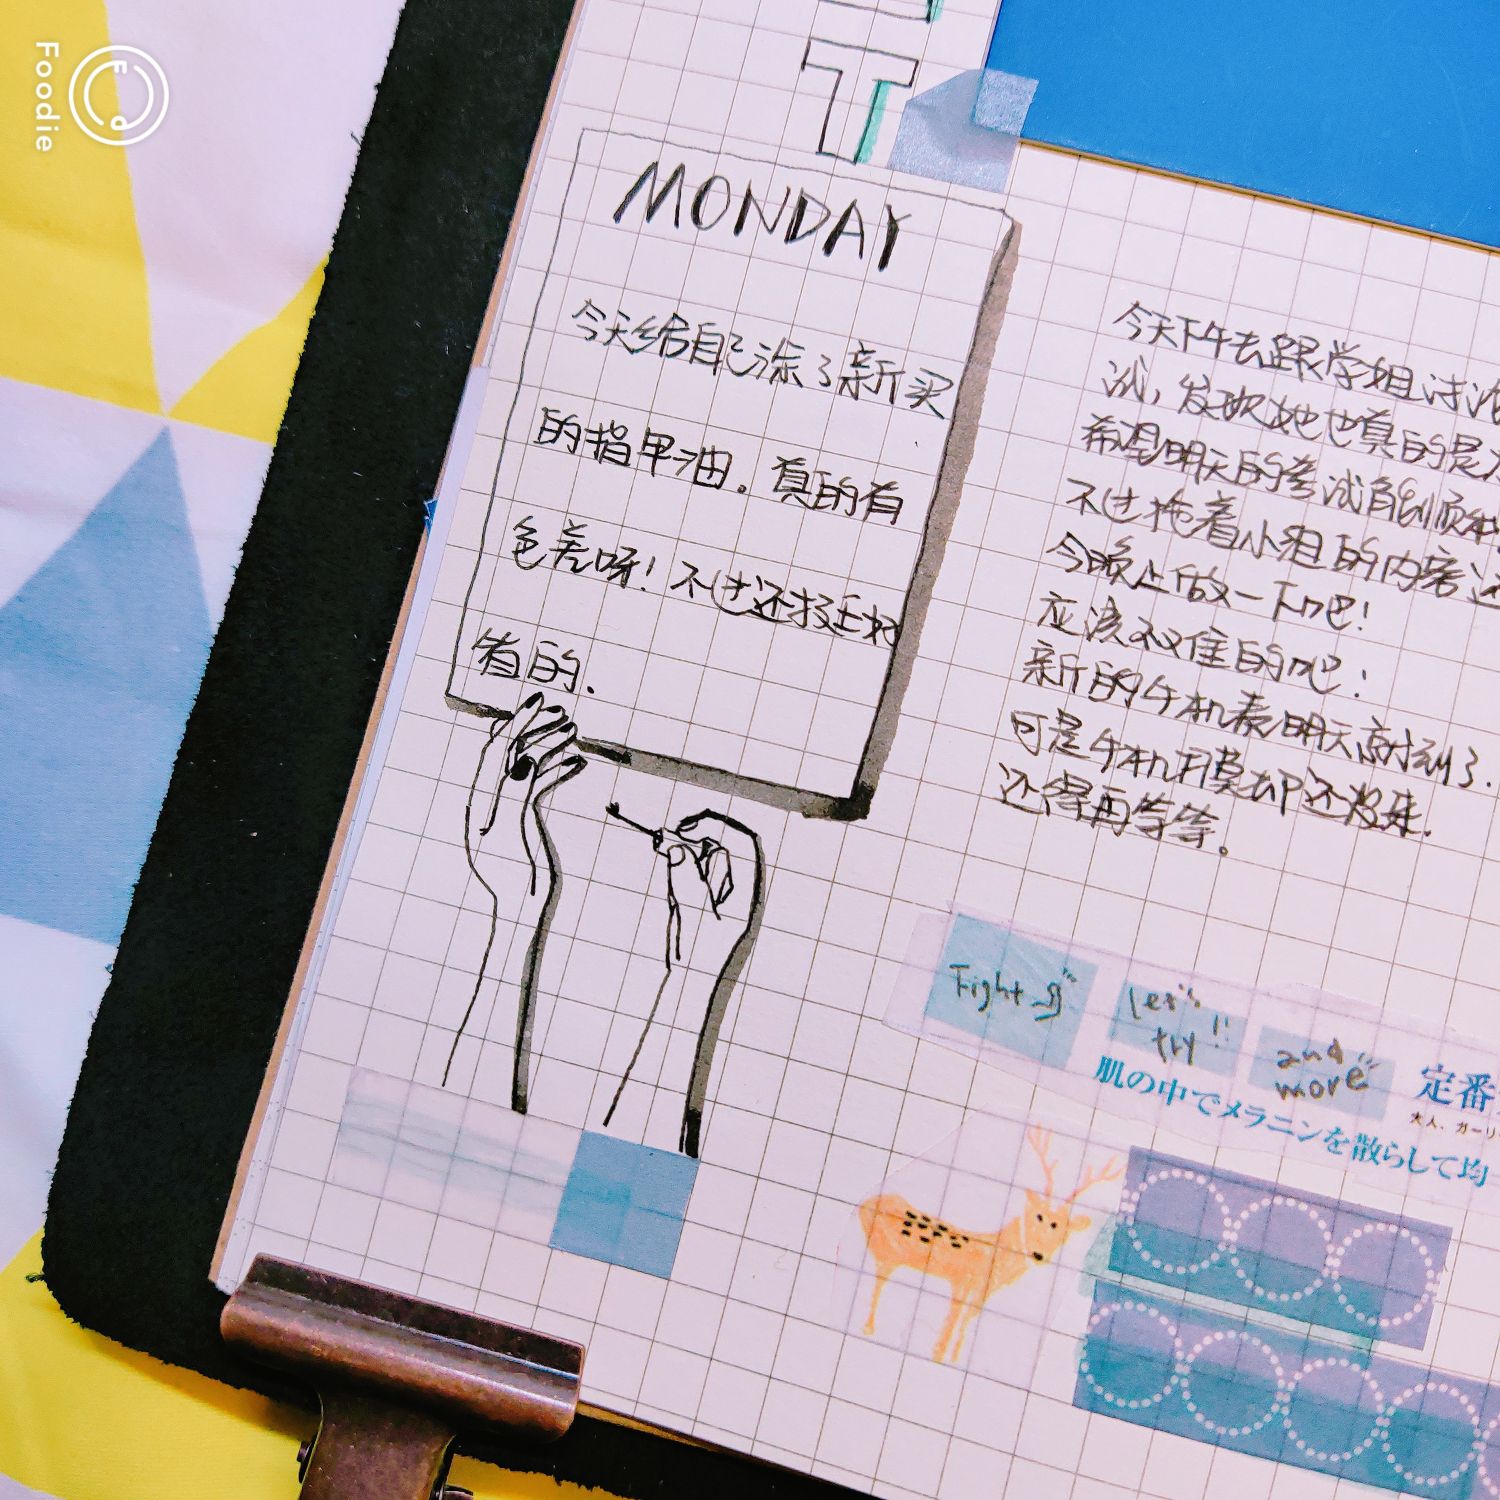 Foodie
T
MONDAY
今天给自己涂了新买
的指甲油。真的有
色差呀！不过还挺好
看的.
今天下午去跟学姐讨论
试，发现她也真的是
希望明天的考试能够顺利
不过拖着小组的内容还
今晚上做一下吧！
应该不难的吧！
新的手机壳明天就到了.
可是手机膜却还没来.
还得再等等。
Fight
let's try!!
and more
定番
大人、ガーリ
肌の中でメラニンを散らして均